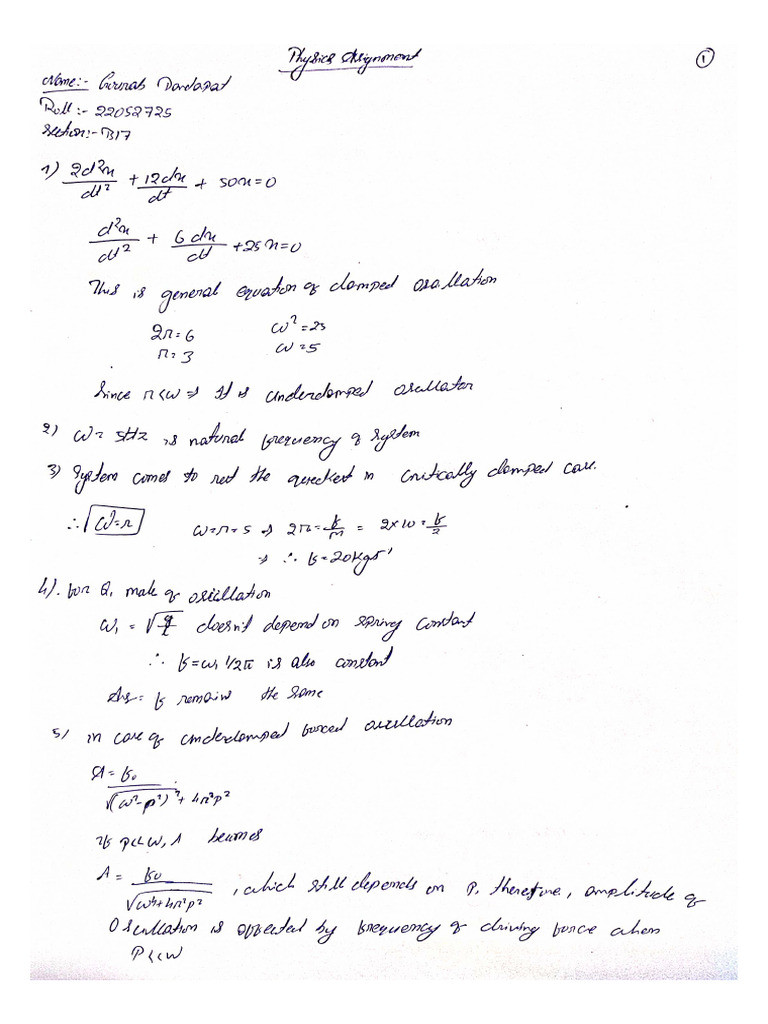 Physics Assignment
①
Name:- Gourab Dandapat
Roll:- 22052725
Section:- B17
1) 2d²x/dt² + 12dx/dt + 50x=0
d²x/dt² + 6dx/dt + 25x=0
This is general equation of damped oscillation
2r=6 ω²=25
r=3 ω=5
Since r<ω ⇒ It is underdamped oscillator
2) ω= 5Hz is natural frequency of system
3) System comes to rest the quickest in critically damped case.
∴ ω=r ω=r=5 ⇒ 2r=b/m = 2×10=b/2
⇒ ∴ b=20kgs⁻¹
4). for Q, mode of oscillation
ω₁ = √g/l doesn't depend on spring constant
∴ f=ω₁/2π is also constant
Ans= f remains the same
5) in case of underdamped forced oscillation
A= f₀/√(ω²-p²)²+4r²p²
If p<<ω, A becomes
A= f₀/√ω⁴+4r²p², which still depends on p. therefore, amplitude of
Oscillation is affected by frequency of driving force when
P<<ω